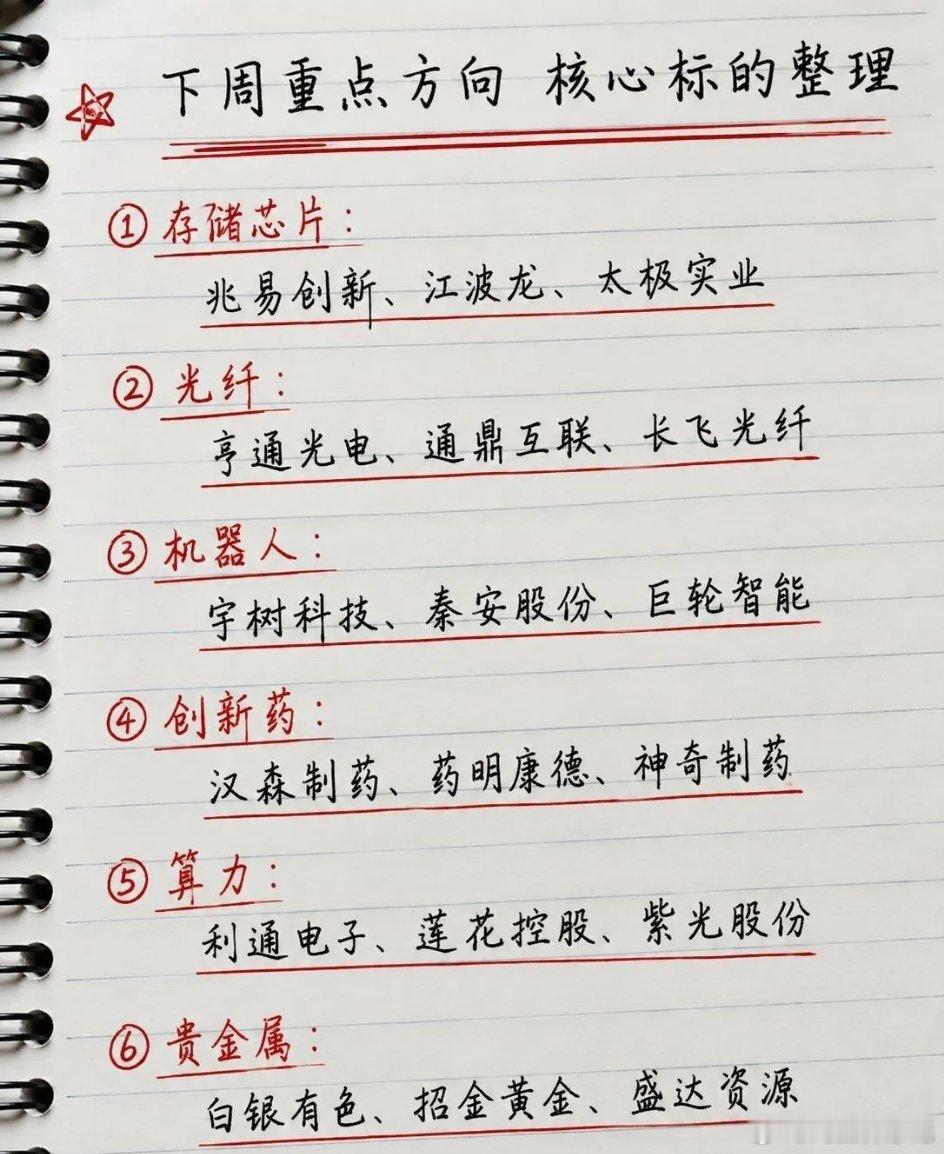 下周重点方向 核心标的整理
①存储芯片：
兆易创新、江波龙、太极实业
②光纤：
亨通光电、通鼎互联、长飞光纤
③机器人：
宇树科技、秦安股份、巨轮智能
④创新药：
汉森制药、药明康德、神奇制药
⑤算力：
利通电子、莲花控股、紫光股份
⑥贵金属：
白银有色、招金黄金、盛达资源